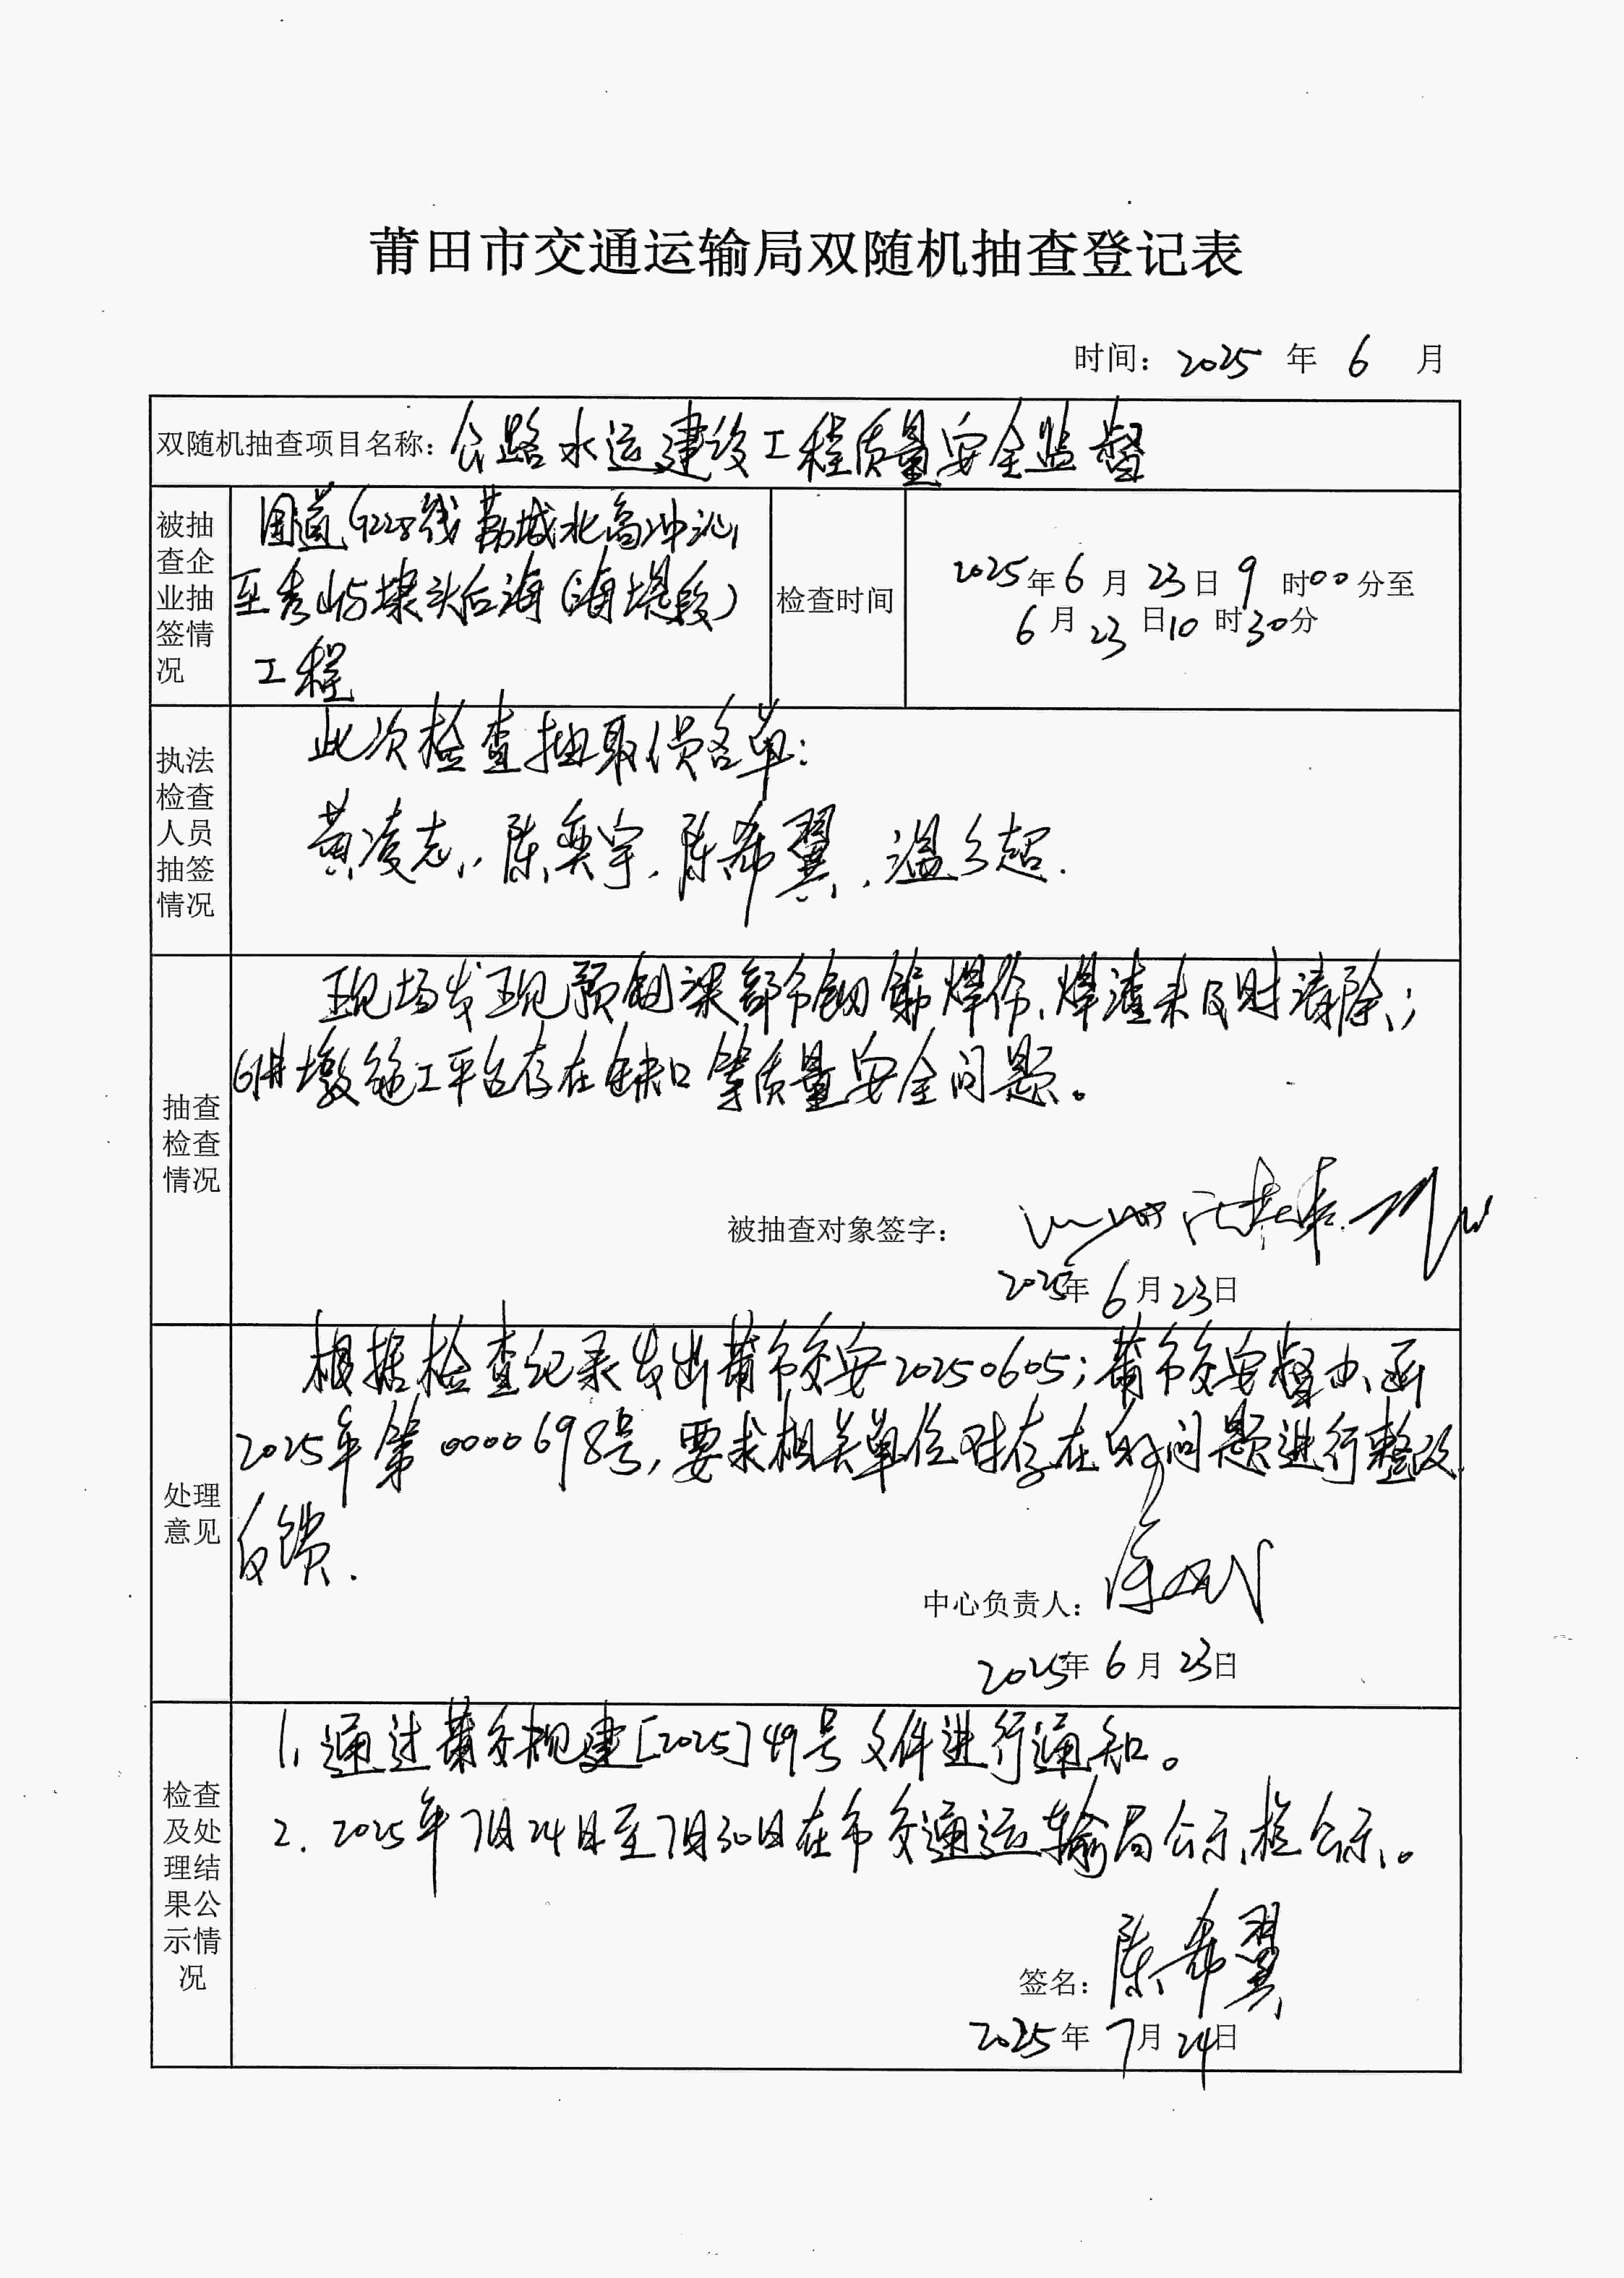 莆田市交通运输局双随机抽查登记表
时间：2025 年 6 月
双随机抽查项目名称：公路水运建设工程质量安全监督
被抽查企业抽签情况
国道G228线荔城北高冲沁
至秀屿埭头后海（海堤段）
工程
检查时间
2025年6月23日9时00分至
6月23日10时30分
执法检查人员抽签情况
此次检查抽取人员名单：
黄凌志、陈奕宇、陈希翼、温超.
抽查检查情况
现场发现预制梁部分钢筋焊伤、焊渣未及时清除；
6#墩施工平台存在缺口等质量安全问题。
被抽查对象签字：
2025年6月23日
处理意见
根据检查纪录发出莆市交安20250605；莆市交安督办函
2025年第0000698号，要求相关单位对存在的问题进行整改
反馈.
中心负责人：
2025年6月23日
检查及处理结果公示情况
1、通过莆交规建[2025]49号文件进行通知。
2. 2025年7月24日至7月30日在市交通运输局公示栏公示。
签名：陈希翼
2025年7月24日